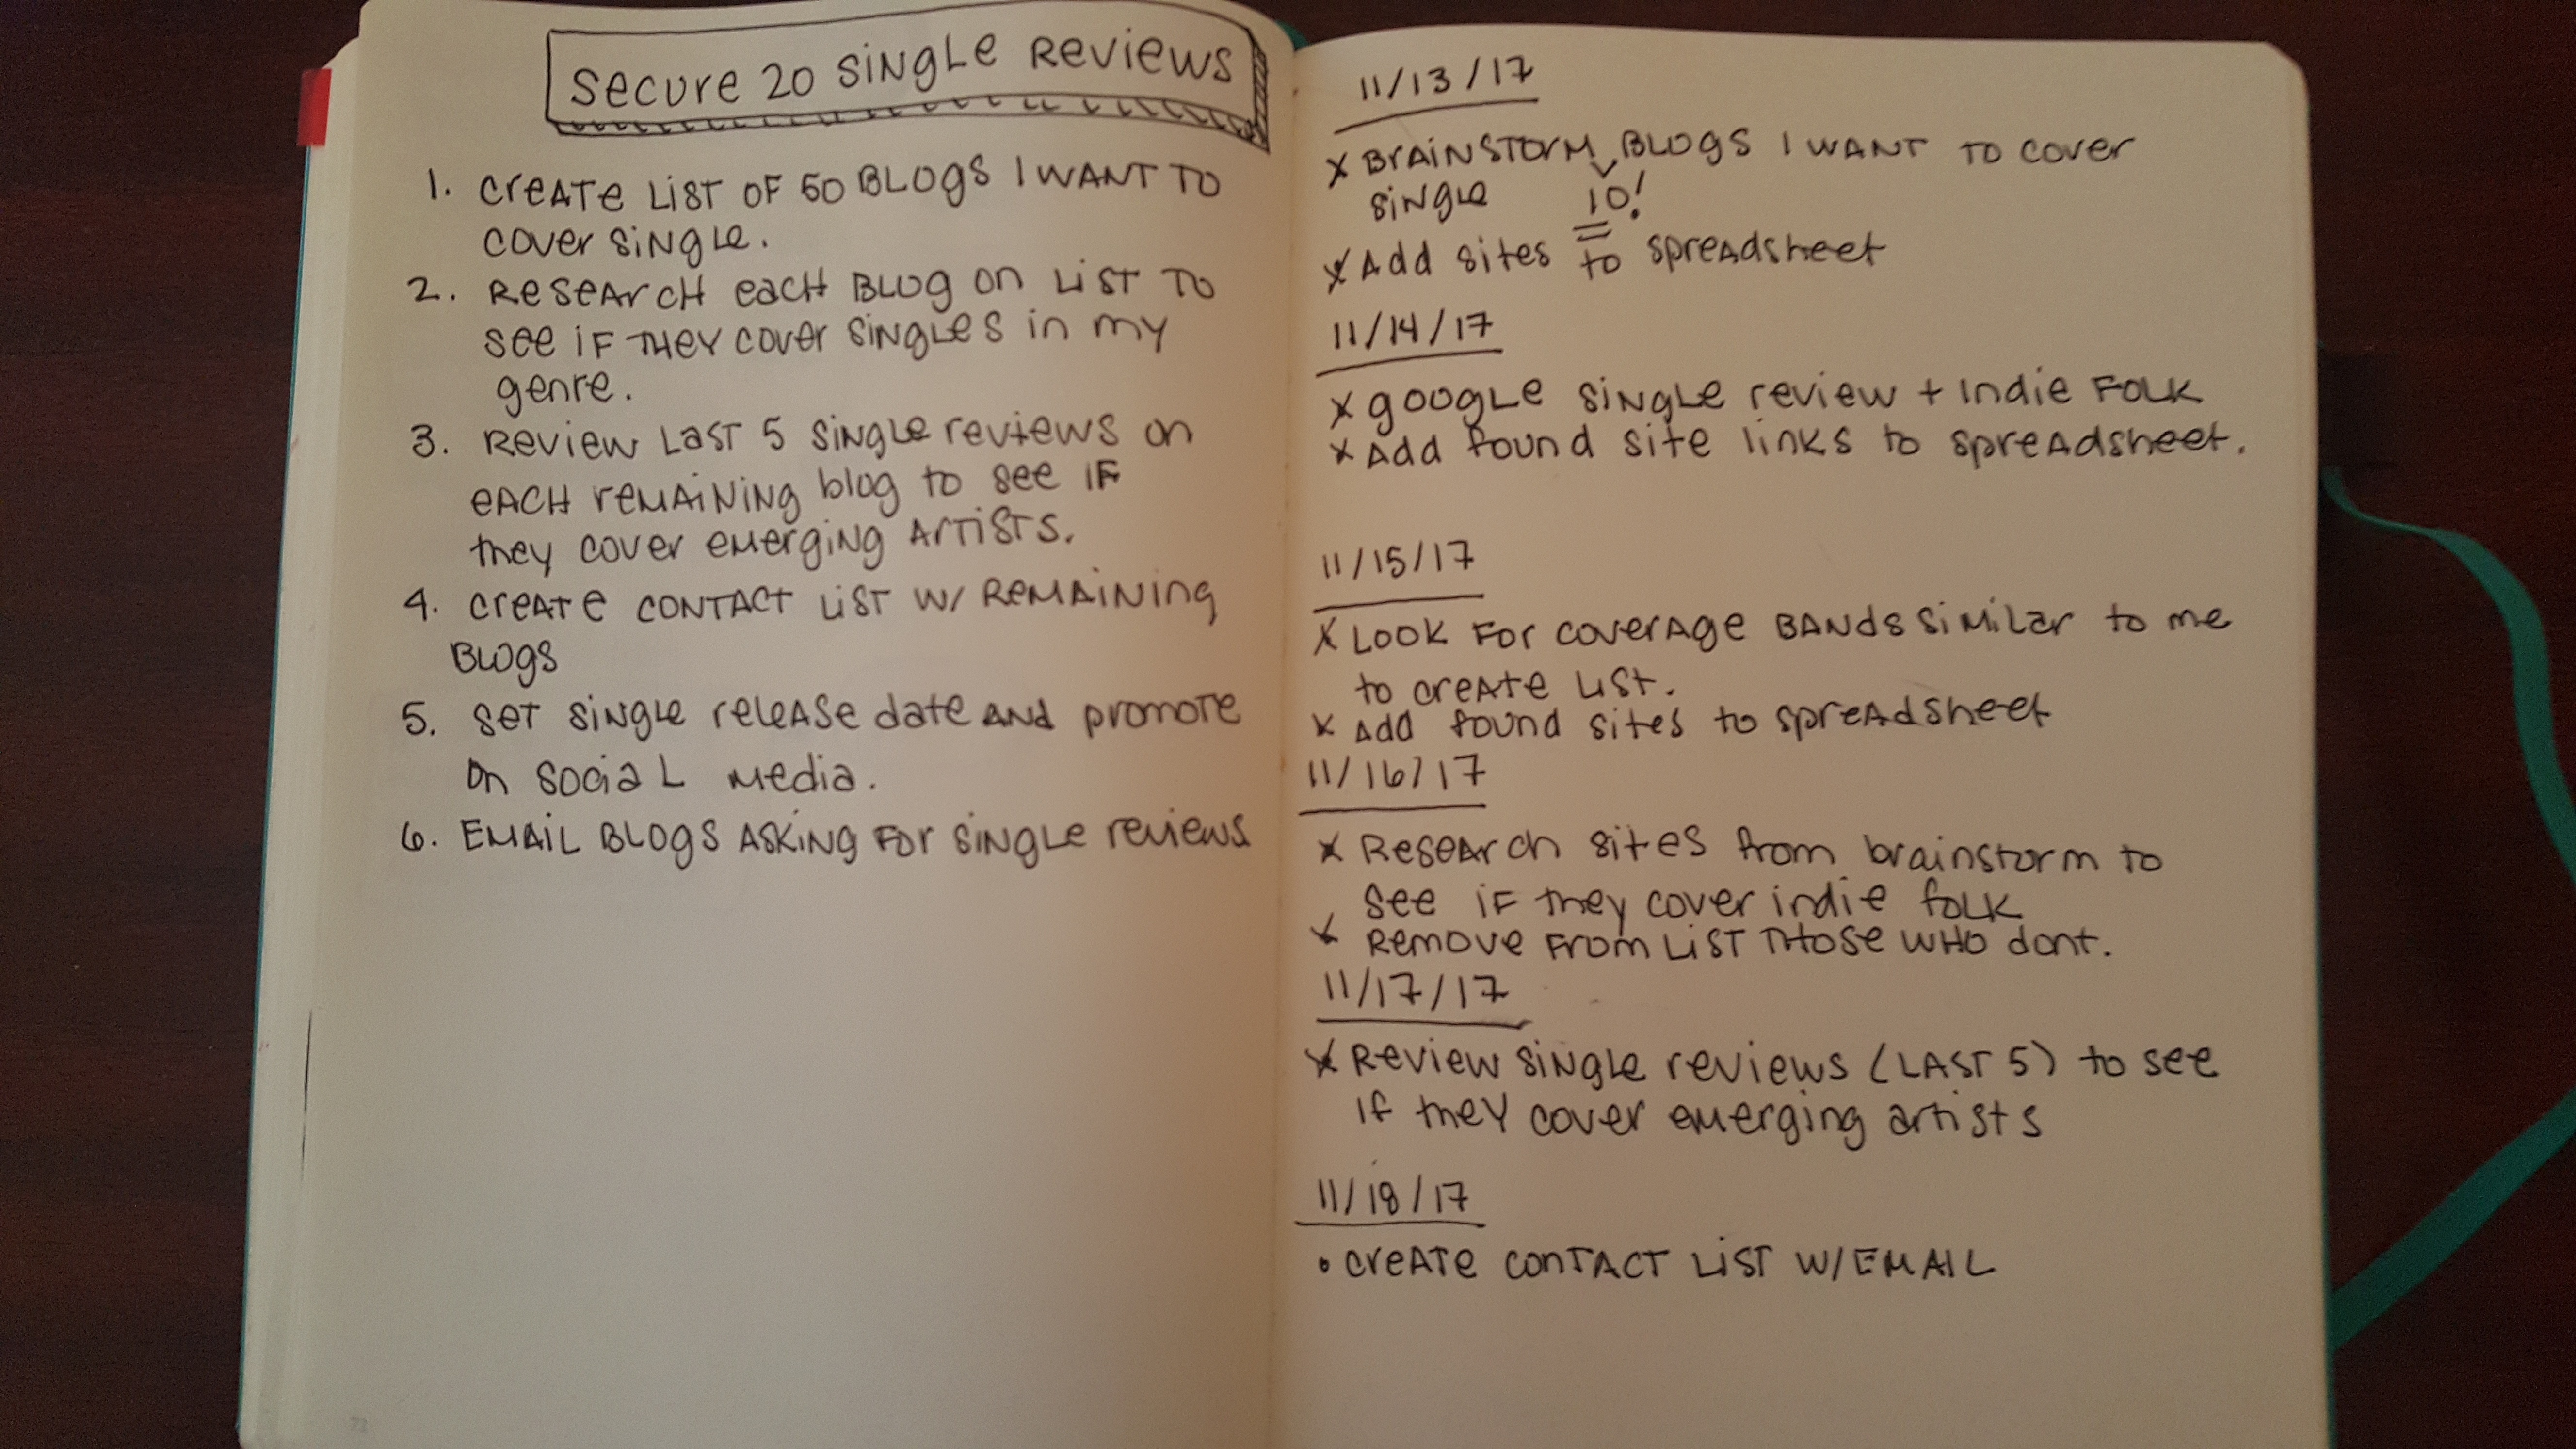 Secure 20 Single Reviews
1. Create list of 50 blogs I want to
cover single.
2. Research each blog on list to
see if they cover singles in my
genre.
3. Review last 5 single reviews on
each remaining blog to see if
they cover emerging artists.
4. Create contact list w/ remaining
blogs
5. Set single release date and promote
on social media.
6. Email blogs asking for single reviews
11/13/17
x Brainstorm blogs I want to cover
single 10!
x Add sites to spreadsheet
11/14/17
x google single review + indie folk
x Add found site links to spreadsheet.
11/15/17
x Look for coverage bands similar to me
to create list.
x Add found sites to spreadsheet
11/16/17
x Research sites from brainstorm to
see if they cover indie folk
x Remove from list those who dont.
11/17/17
x Review single reviews (last 5) to see
if they cover emerging artists
11/18/17
• create contact list w/ email